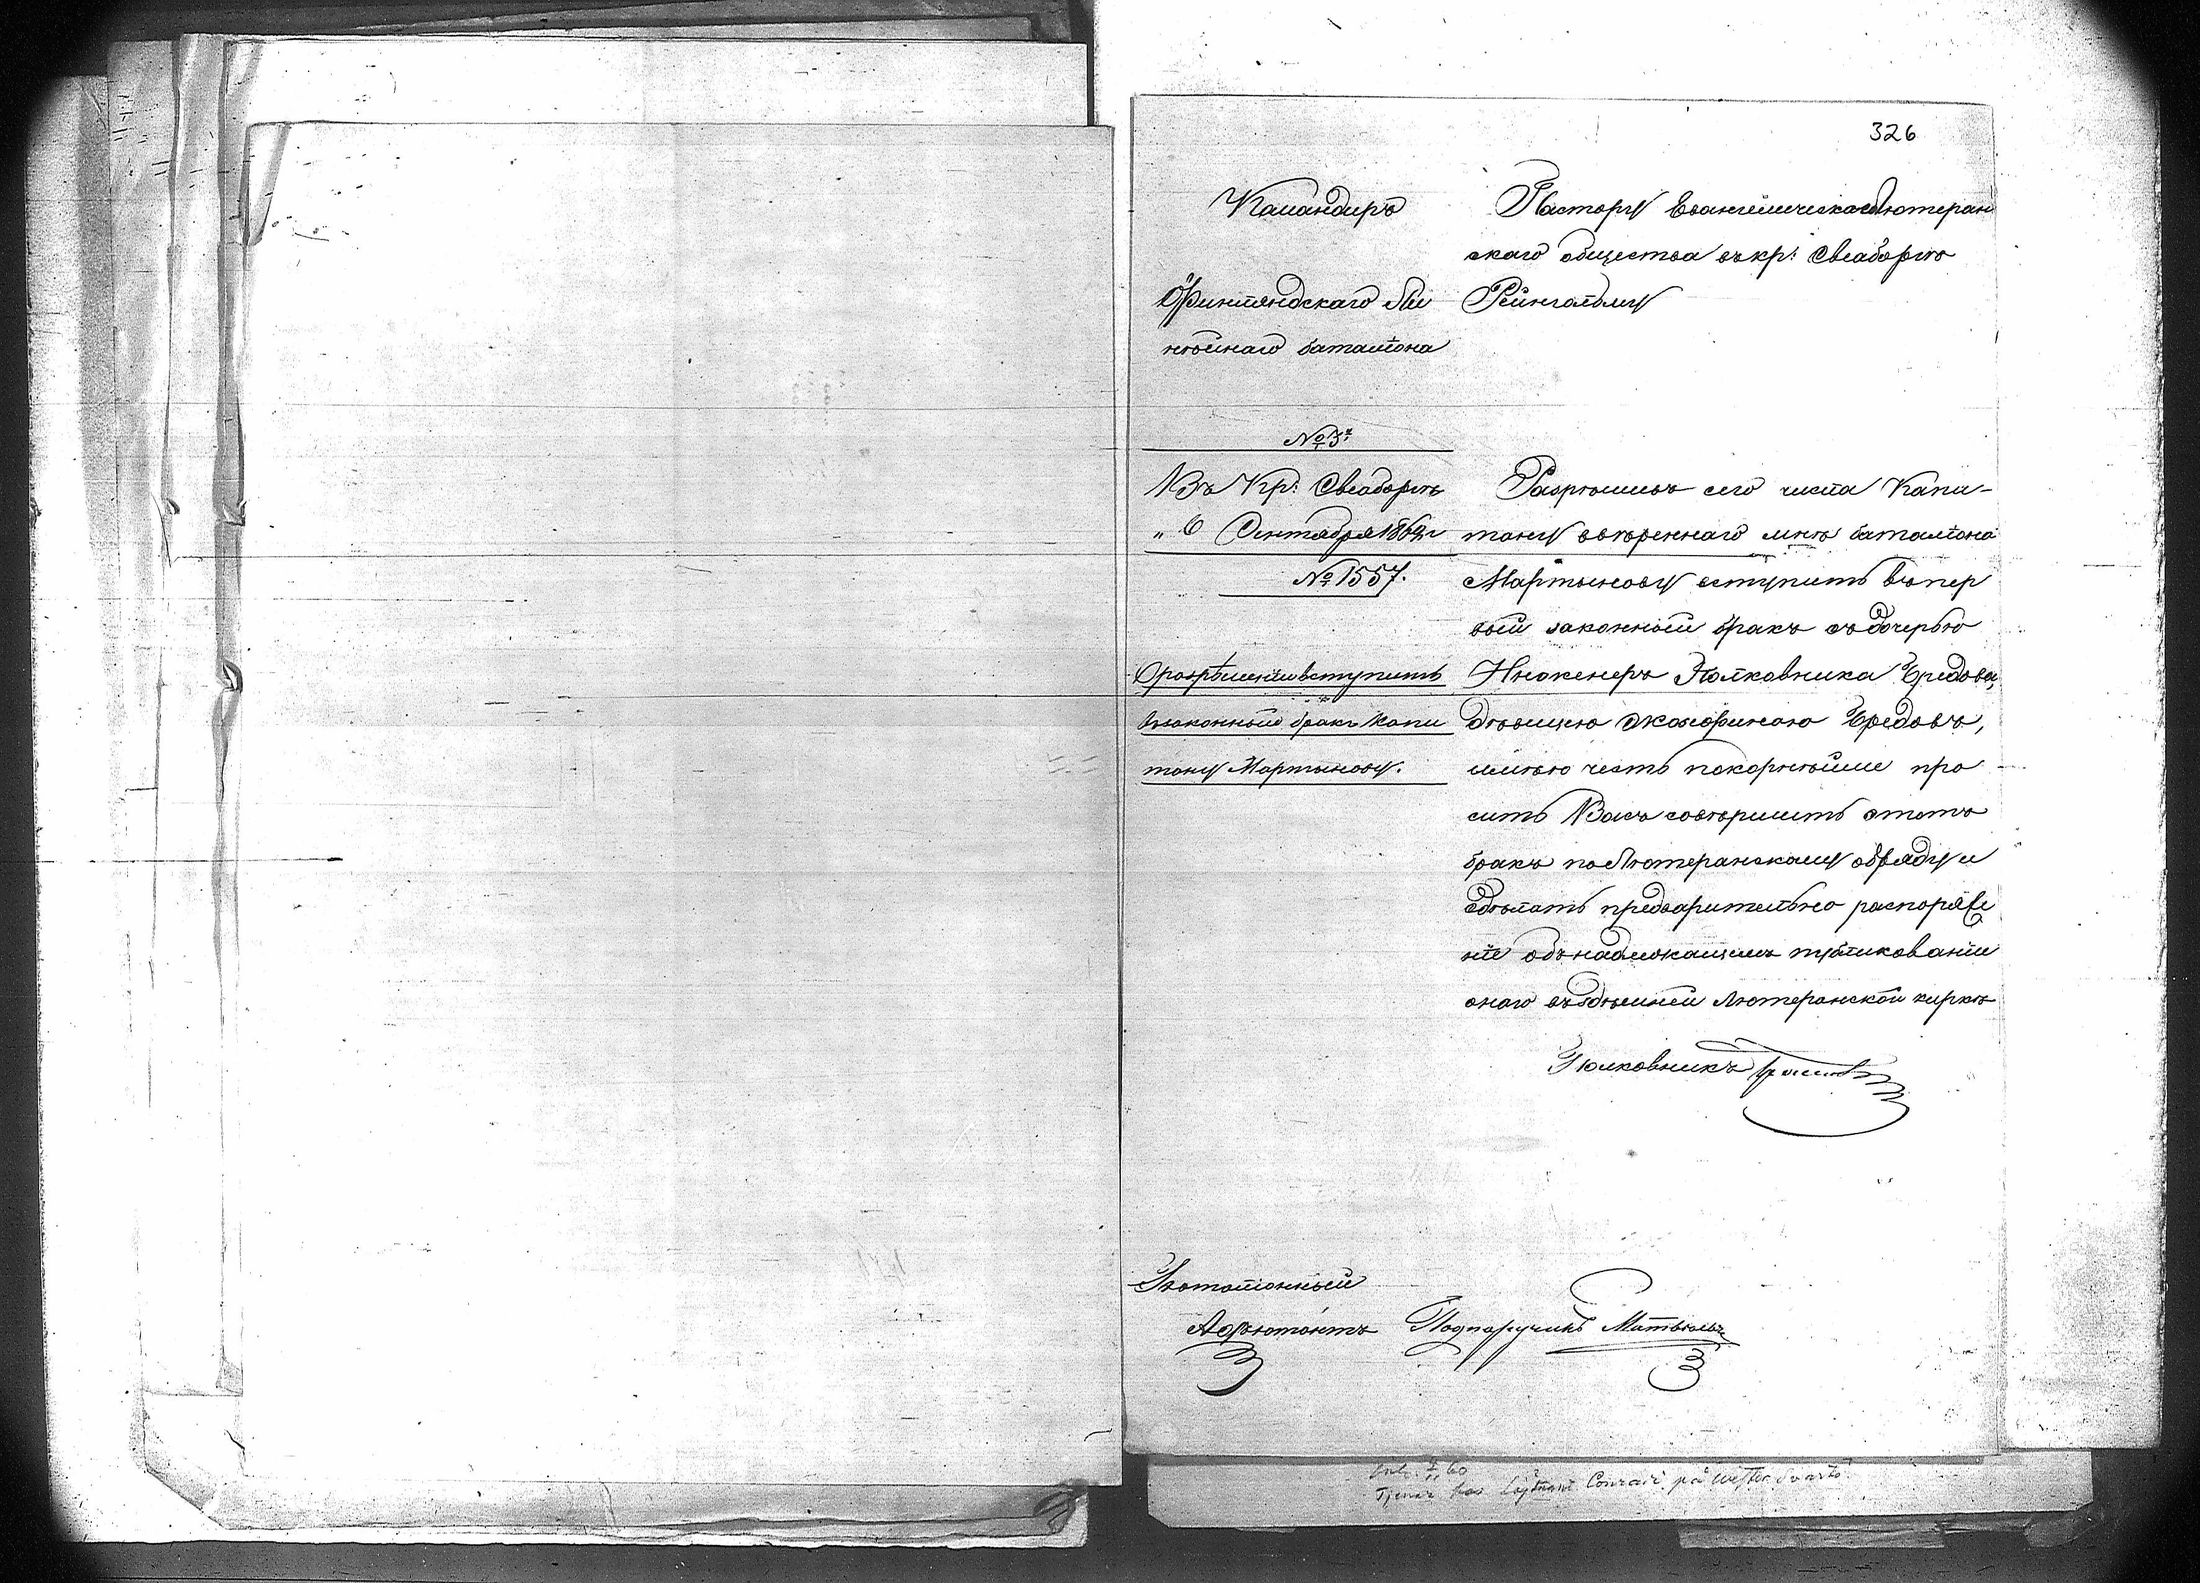 326
Командиръ
Финляндскаго Ли
нѣйнаго баталіона
Въ Кр: Свеаборгѣ
„ 6 Сентября 186 г
№ 1557.
О разрѣшеніи вступить
въ законный бракъ Капи
тану Мартынову.
Пастору Евангелическо Лютеран
скаго общества въ кр: Свеаборгѣ
Рейнгольму
Разрѣшивъ сего числа Капи-
тану ввѣреннаго мнѣ баталіона
Мартынову вступить въ пер
вый законный бракъ съ дочерью
Инженеръ Полковника
дѣвицею
имѣю честь покорнѣйше про
сить Васъ совершить этотъ
бракъ по Лютеранскому обряду и
сдѣлать предварительно распоряже
ніе объ надлежащемъ публикованіи
онаго въ здѣшней Лютеранской киркѣ
Полковникъ
Баталіонный
Адъютантъ Подпоручикъ Матвѣевъ
60
Tjenar hos Löjtnant Conradi på Wester Svartö